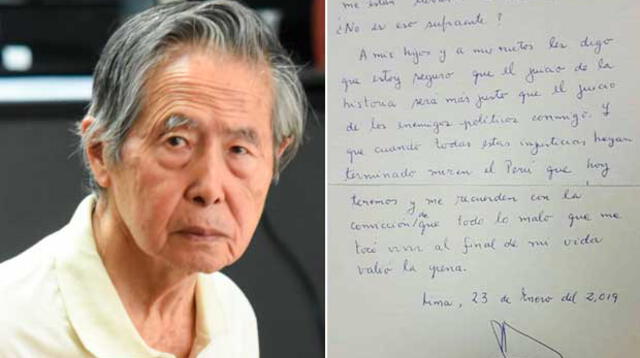 me están llevar
¿No es eso suficiente?
A mis hijos y a mis nietos les digo
que estoy seguro que el juicio de la
historia será más justo que el juicio
de los enemigos políticos conmigo. Y
que cuando todas estas injusticias hayan
terminado miren el Perú que hoy
tenemos y me recuerden con la
convicción/de que todo lo malo que me
tocó vivir al final de mi vida
valió la pena.
Lima, 23 de Enero del 2,019